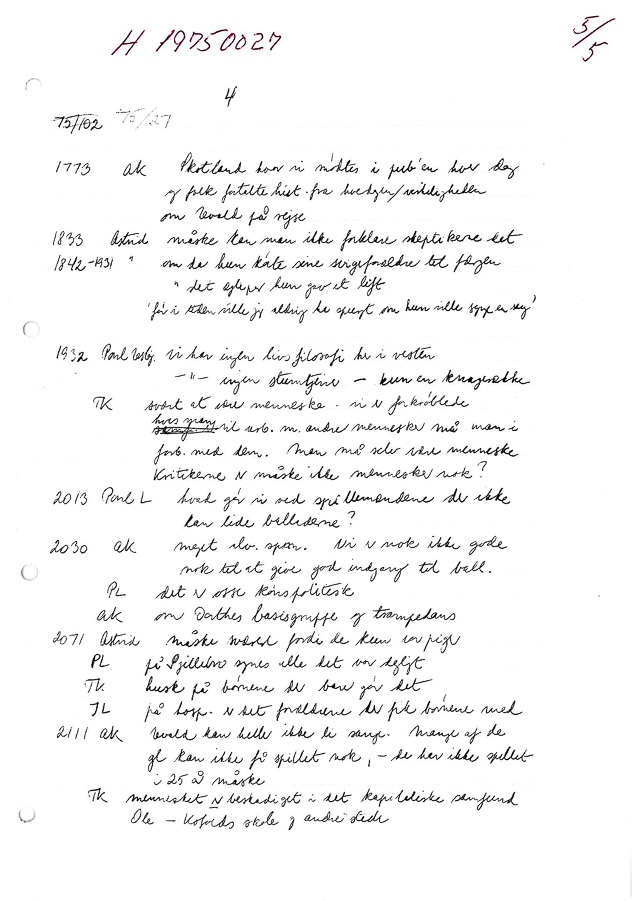 H 19750027
5/5
4
75/102 75/27
1773 AK Skotland hvor vi mødtes i pub'en hver dag
og folk fortalte hist. fra hverdagen/virkeligheden
om Evald på rejse
1833 Astrid måske kan man ikke forklare skeptikerne det
1842-1931 " om da hun kørte sine svigerforældre til færgen
" det
hun gav et lift
'før i tiden ville jeg aldrig ha spurgt om hun ville synge en sang'
1932 Poul vi har ingen livsfilosofi her i vesten
-"- ingen stumtjene - kun en knagerække
TK svært at være menneske. vi er forkrøblede
hvis man vil arb. m. andre mennesker må man i
forb. med dem. Man må selv være menneske
Kritikerne er måske ikke mennesker nok?
2013 Poul L hvad gør vi ved spillemændene der ikke
kan lide balladerne?
2030 AK meget alv. spørs. Vi er nok ikke gode
nok til at give god indgang til ball.
PL det er osse kønspolitisk
AK om Dorthes basisgruppe og trampedans
2071 Astrid måske svært fordi de kun var piger
PL på synes alle det var dejligt
TK husk på børnene der bare gør det
JL på hosp. er det forældrene der fik børnene med
2111 AK Evald kan heller ikke li sange. Mange af de
gl kan ikke få spillet nok, - de har ikke spillet
i 25 år måske
TK mennesket er beskadiget i det kapitaliske samfund
Ole - Kofoeds skole og andre steder